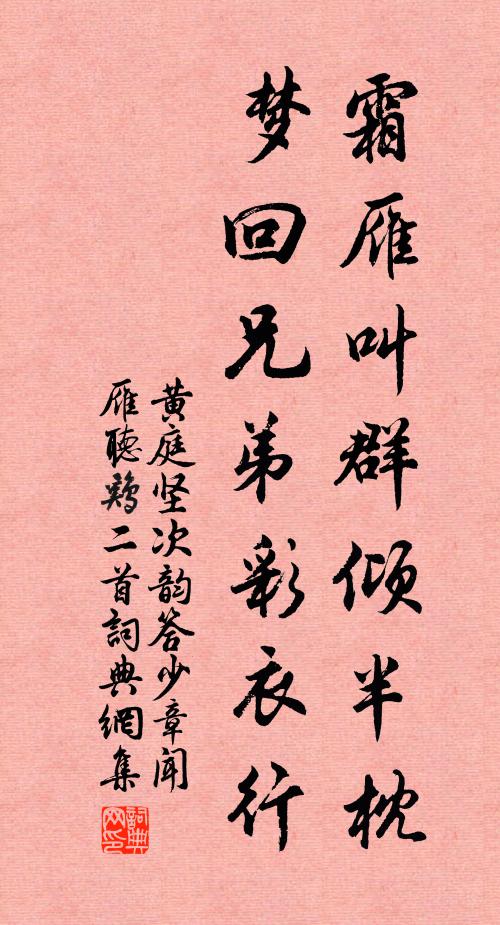 霜雁叫群倾半枕
梦回兄弟彩衣行
黄庭坚次韵答少章闻
雁聴鸡二首詞典網集
詞典网印